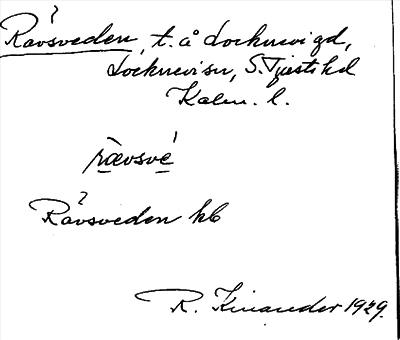 ?
Råvsveden, t. å Locknevi gd,
Locknevi sn, S. Tjusts hd
Kalm. l.
rævsvé
?
Råvsveden hb
R. Kinander 1929.